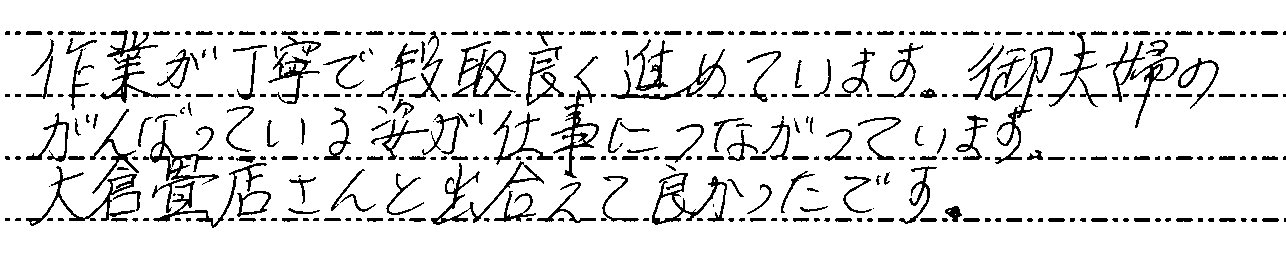 作業が丁寧で段取良く進めています。御夫婦の
がんばっている姿が仕事につながっています。
大倉畳店さんと出合えて良かったです。